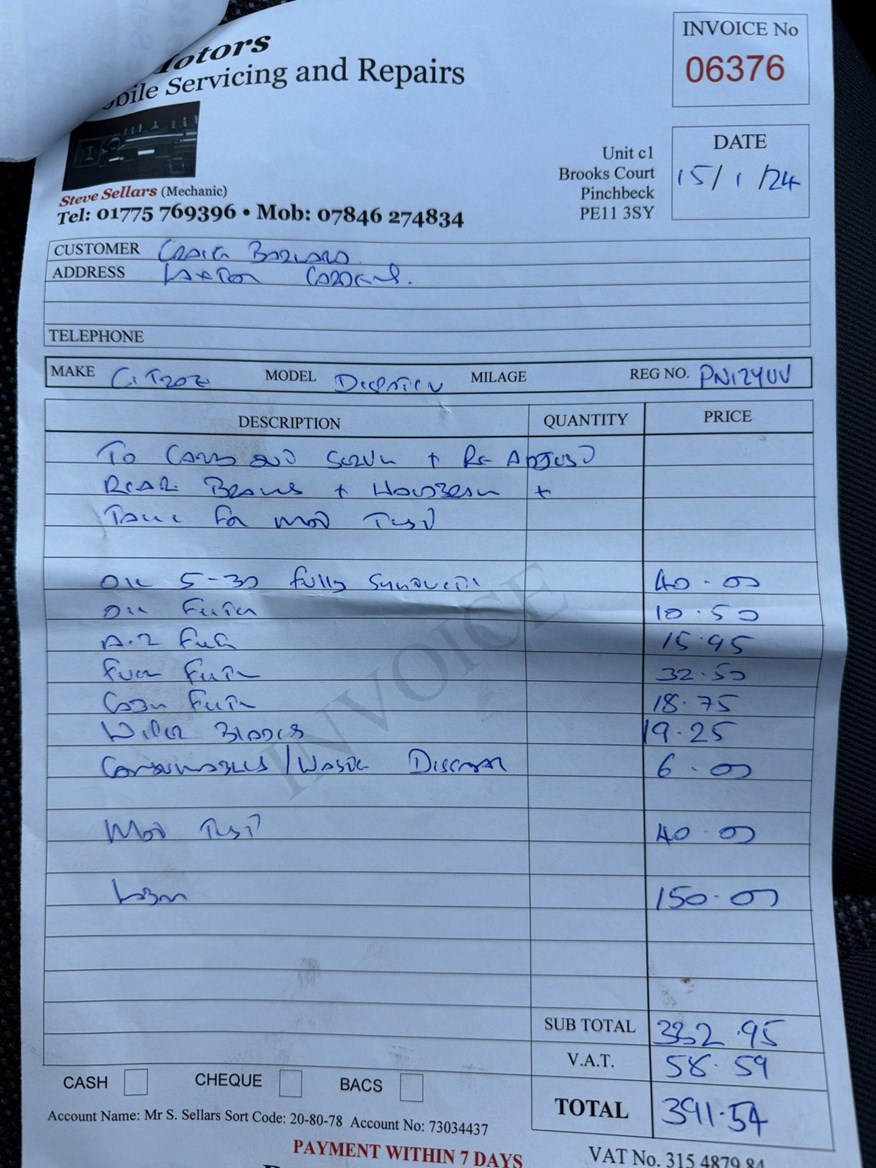 otors
bile Servicing and Repairs
INVOICE No
06376
DATE
15/1/24
Unit c1
Brooks Court
Pinchbeck
PE11 3SY
Steve Sellars (Mechanic)
Tel: 01775 769396 • Mob: 07846 274834
CUSTOMER Craig
ADDRESS
TELEPHONE
MAKE MODEL MILAGE REG NO. PN12YUV
DESCRIPTION QUANTITY PRICE
To Carry out + Re Adjust
Rear + +
for Mot Test
Oil 5-30 fully Synthetic 40.00
Oil Filter 10.50
15.95
Fuel Filter 32.50
Filter 18.75
Wiper Blades 19.25
Consumables/Waste Disposal 6.00
INVOICE
Mot Test 40.00
150.00
SUB TOTAL 332.95
V.A.T. 58.59
TOTAL 391.54
CASH CHEQUE BACS
Account Name: Mr S. Sellars Sort Code: 20-80-78 Account No: 73034437
PAYMENT WITHIN 7 DAYS
VAT No. 315 4879 84